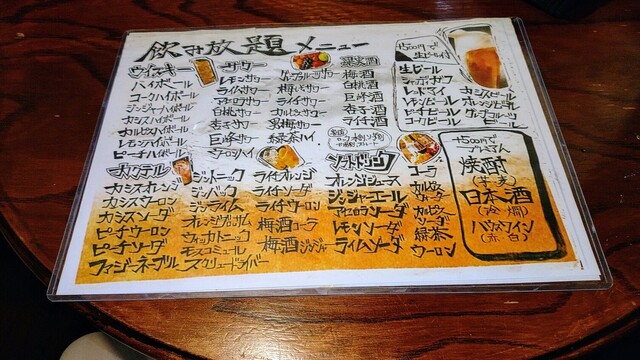 飲み放題 メニュー
ウイスキー
ハイボール
コークハイボール
ジンジャーハイボール
カシスハイボール
カルピスハイボール
レモンハイボール
ピーチハイボール
サワー
レモンサワー
ライムサワー
アセロラサワー
白桃サワー
杏サワー
巨峰サワー
ウーロンハイ
梅しそサワー
ライチサワー
カルピスサワー
男梅サワー
緑茶ハイ
果実酒
梅酒
白桃酒
巨峰酒
杏酒
ライチ酒
+500円で
生ビール付
生ビール
シャンディガフ
レッドアイ
レモンビール
ピーチビール
コークビール
カシスビール
オレンジビール
カクテル
カシスオレンジ
カシスウーロン
カシスソーダ
ピーチウーロン
ピーチソーダ
ファジーネーブル
ジントニック
ジンバック
ジンライム
オレンジブロッサム
ウォッカトニック
モスコミュール
スクリュードライバー
ライチオレンジ
ライチソーダ
ライチウーロン
梅酒コーラ
梅酒ジンジャー
ソフトドリンク
オレンジジュース
ジンジャエール
アセロラソーダ
レモンソーダ
ライムソーダ
コーラ
カルピス
緑茶
ウーロン
+500円で
プレミアム
焼酎
(芋 麦)
日本酒
(冷 燗)
ハウスワイン
(赤 白)